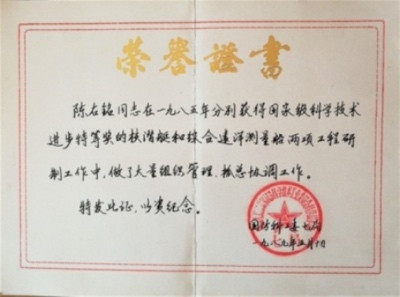 荣誉證書
陈右铭同志在一九八五年分别获得国家级科学技术
进步特等奖的核潜艇和综合远洋测量船两项工程研
制工作中，做了大量组织管理、抓总协调工作。
特发此证，以资纪念。
国防科工委七局
一九八九年三月十日